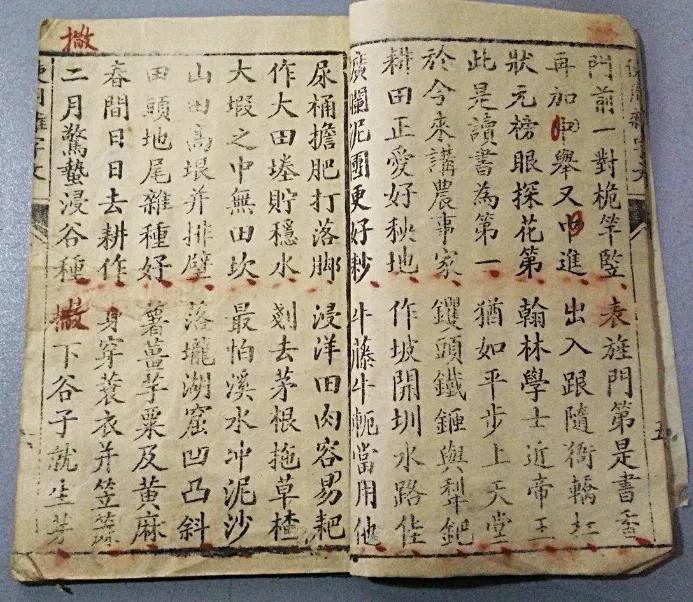 門前一對桅竿竪 表旌門第是書香
再加中舉又中進 出入跟隨衙轎扛
狀元榜眼探花第 翰林學士近帝王
此是讀書為第一 猶如平步上天堂
於今來講農事家 钁頭鐵與犁鈀
耕田正愛好秧地 作坡開圳水路佳
泥團更好耖 牛藤牛軛當用他
尿桶擔肥打落脚 浸洋田肉容易耙
作大田塂貯穩水 剗去茅根拖草楂
大嘏之中無田坎 最怕溪水冲泥沙
山田高埌并排壁 落壠湖窟凹凸斜
田頭地尾雜種好 薯薑芋粟及黃麻
春間日日去耕作 身穿蓑衣并笠
二月驚蟄浸谷種 撒下谷子就生芽
撒
五